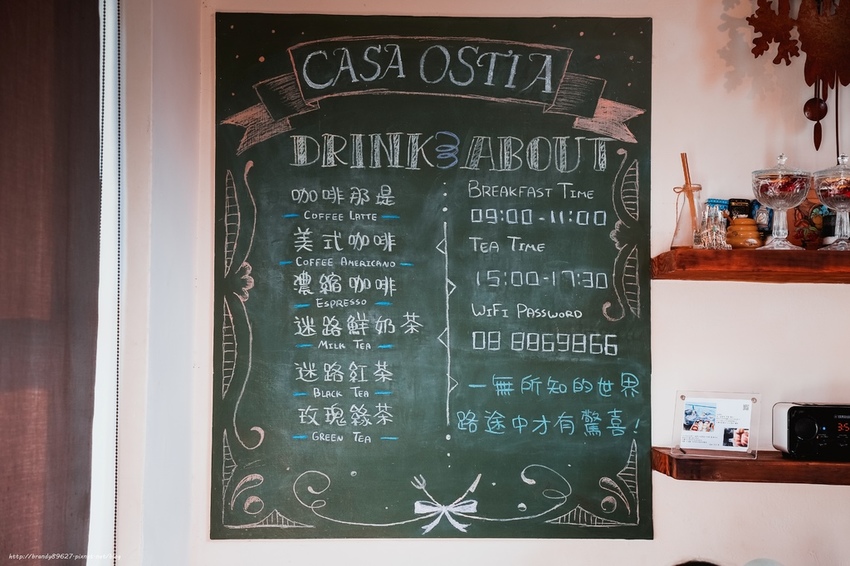 CASA OSTIA
DRINK & ABOUT
咖啡那是
COFFEE LATTE
美式咖啡
COFFEE AMERICANO
濃縮咖啡
ESPRESSO
迷路鮮奶茶
MILK TEA
迷路紅茶
BLACK TEA
玫瑰緣茶
GREEN TEA
BREAKFAST TIME
09:00-11:00
TEA TIME
15:00-17:30
WIFI PASSWORD
08 8869866
一無所知的世界
路途中才有驚喜!